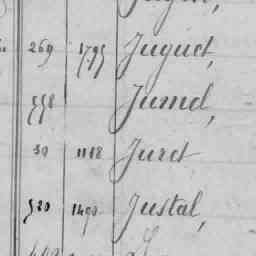 269 1795 Juguet,
558 Jumel,
30 1188 Juret
520 1490 Justal,